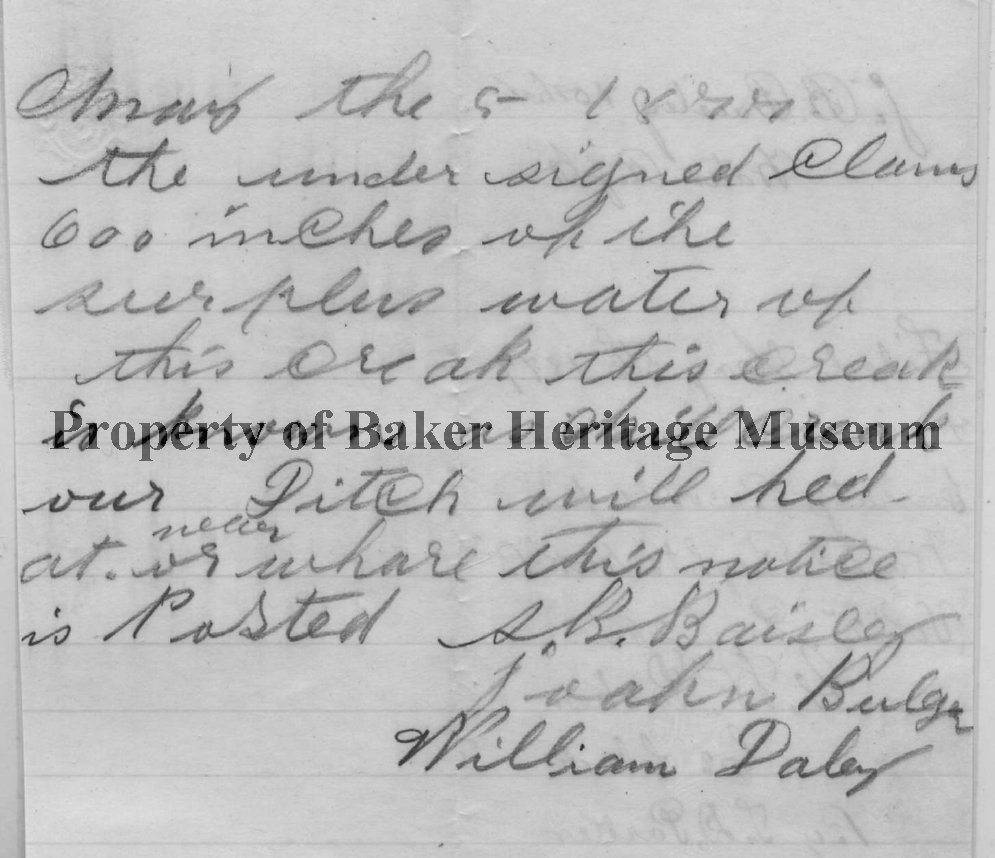 May the 5 - 18
the under signed Clams
600 inches of the
surplus water of
this creak this creak
is known as
Property of Baker Heritage Museum
our Ditch will hed
at. or near whare this notice
is Posted S. B. Baisley
Joahn Bulger
William Daley